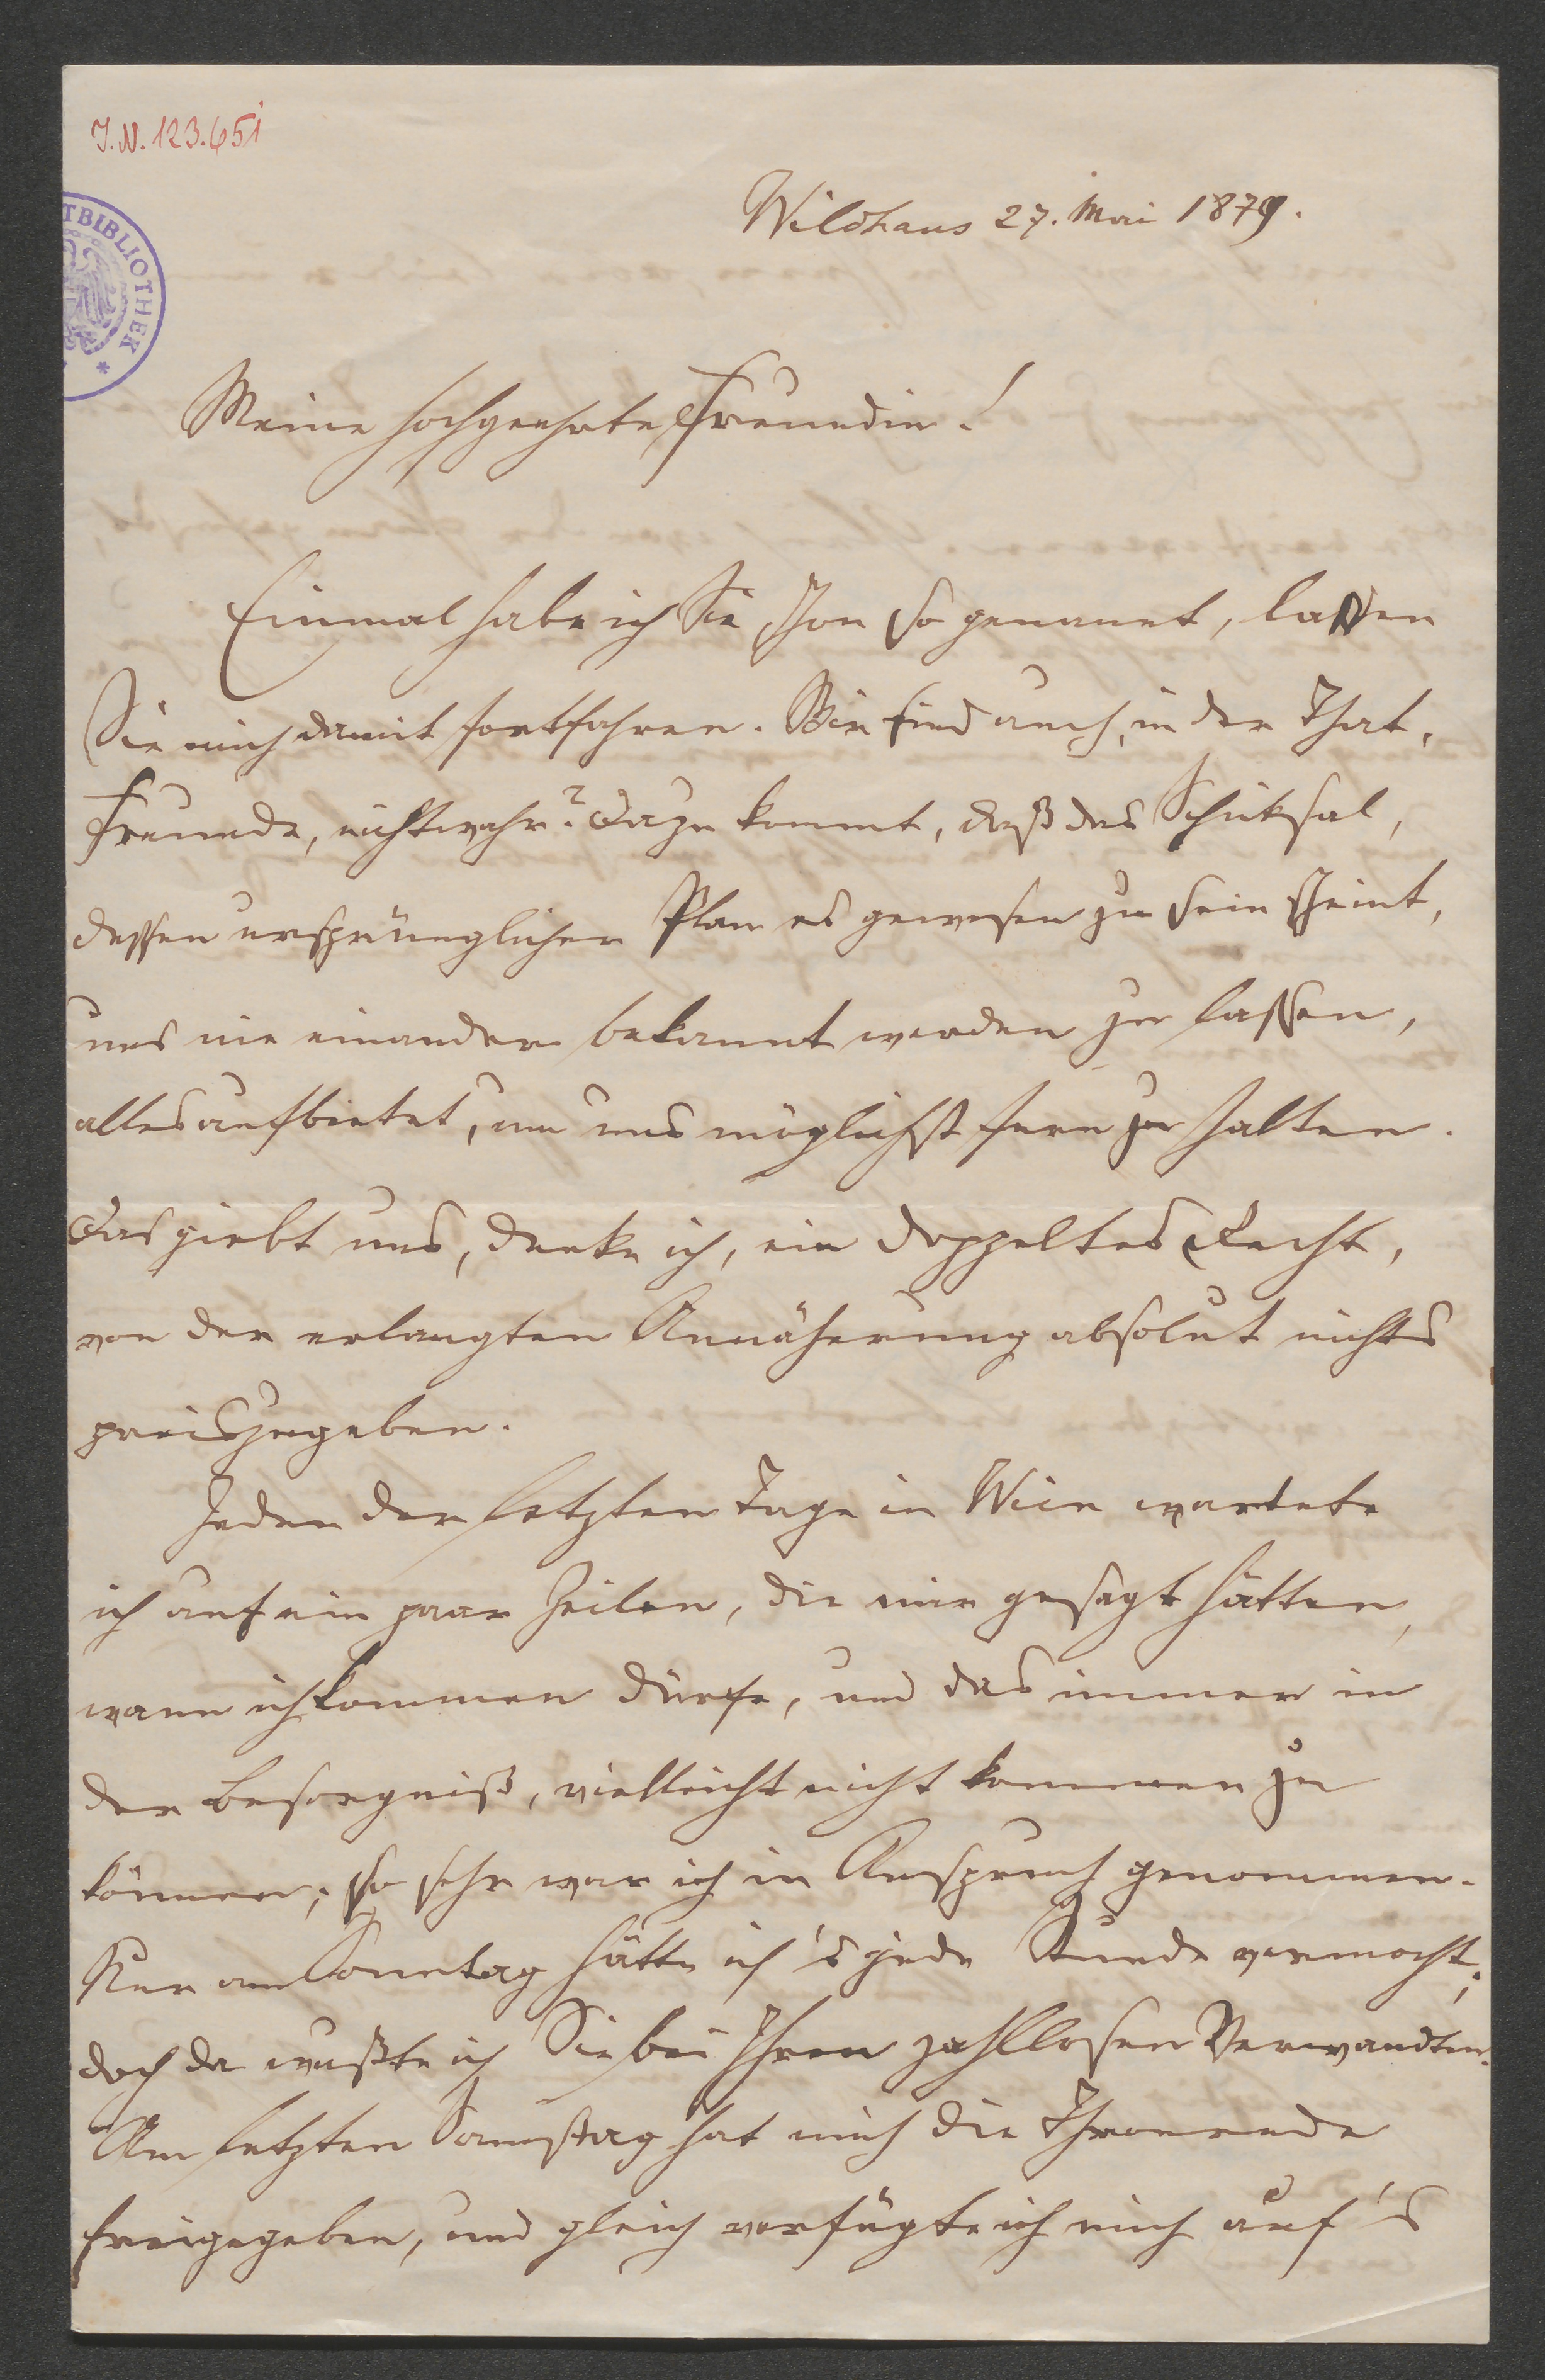 J.N. 123.651
TBIBLIOTHEK *
Wildhaus 27. Mai 1879.
Meine hochgeehrte Freundin!
Einmal habe ich Sie schon so genannt, lassen
Sie mich damit fortfahren. Wir sind auch, in der That,
Freunde, nicht wahr? Dazu kommt, daß das Schicksal,
dessen ursprünglicher Plan es gewesen zu sein scheint,
uns nie einander bekannt werden zu lassen,
alles aufbietet, um uns möglichst fern zu halten.
Das giebt uns, denke ich, ein doppeltes Recht,
von der erlangten Annäherung absolut nichts
preiszugeben.
Jeden der letzten Tage in Wien wartete
ich auf ein paar Zeilen, die mir gesagt hätten,
wann ich kommen dürfe, und das immer in
der Besorgniß, vielleicht nicht kommen zu
können, so sehr war ich in Anspruch genommen.
Nur am Sonntag hätte ich's jede Stunde vermocht;
doch da wußte ich Sie bei Ihren zahllosen Verwandten.
Am letzten Samstag hat mich die Thronrede
freigegeben, und gleich verfügte ich mich auf's